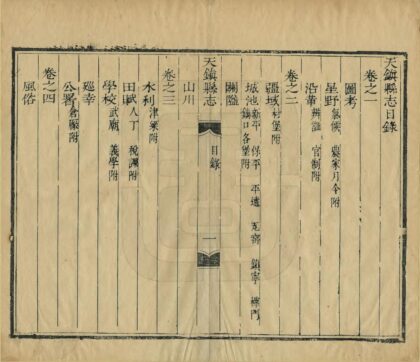 天鎮縣志目錄
卷之一
圖考
星野 氣候 農家月令附
沿革 辨譌 官制附
卷之二
疆域 村堡附
城池 新平 保平 平遠 瓦窰 鎮寧 樺門 鎮口各堡附
關隘
山川
目錄 一
卷之三
水利 津梁附
田賦 人丁 稅課附
學校 武廟 義學附
巡幸
公署 倉廒附
卷之四
風俗